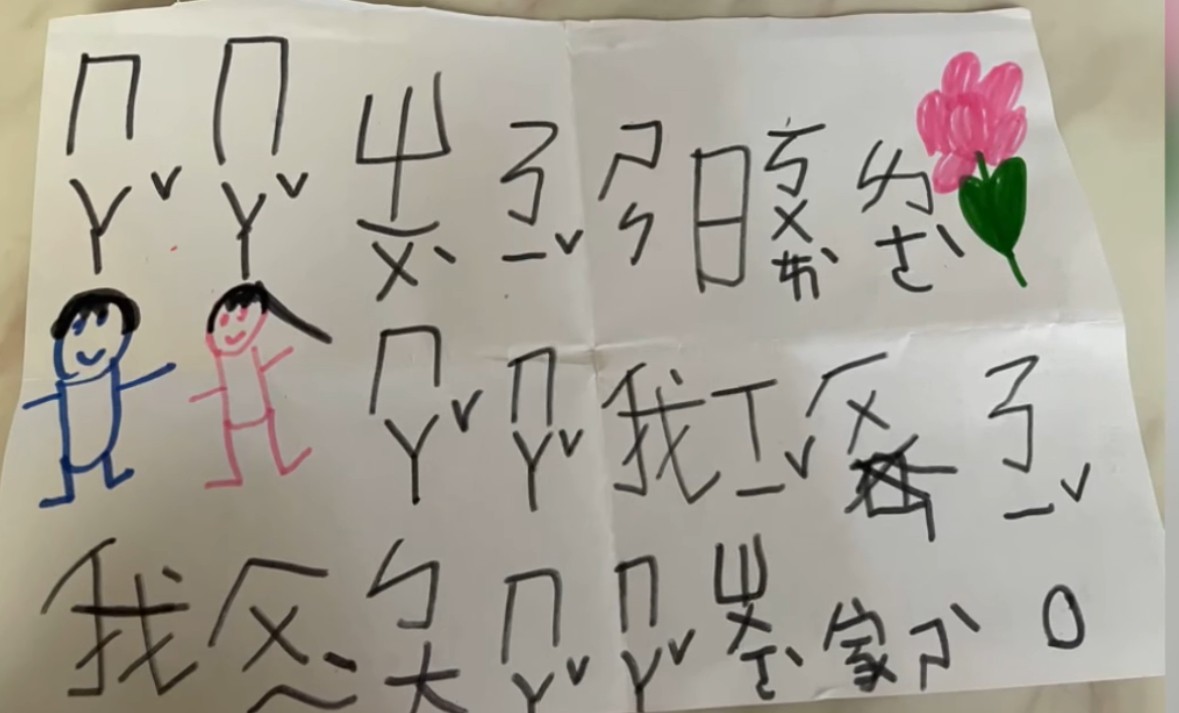 ㄇㄚˇ ㄇㄚˇ ㄓㄨˋ ㄋㄧˇ ㄕㄣ 日 ㄎㄨㄞˋ ㄌㄜˋ
ㄇㄚˇ ㄇㄚˇ 我 ㄒㄧˇ ㄏㄨ ㄋㄧˇ
我 ㄏㄨㄟˋ ㄅㄤ ㄇㄚˇ ㄇㄚˇ ㄓㄨㄛˋ 家 ㄕˋ 。